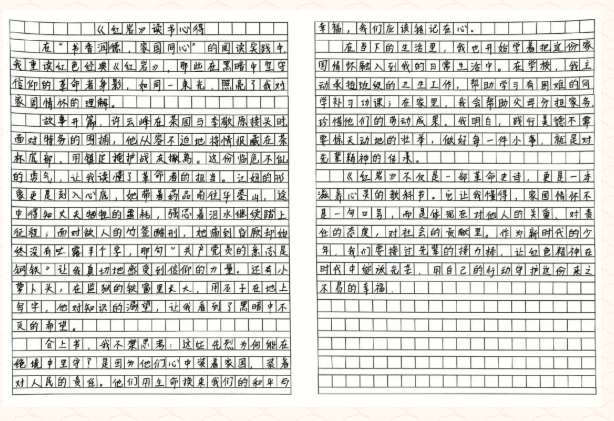 《红岩》读书心得
在“书香润德，家国同心”的阅读实践中，
我重读红色经典《红岩》，那些在黑暗中坚守
信仰的革命者身影，如同一束光，照亮了我对
家国情怀的理解。
故事开篇，许云峰在茶园与李敬原接头时，
面对特务的围捕，他从容不迫地将情报藏在茶
杯底部，用镇定掩护战友撤离。这份临危不乱
的勇气，让我读懂了革命者的担当。江姐的形
象更是刻入心底，她带着药品前往华蓥山，途
中得知丈夫牺牲的噩耗，强忍着泪水继续踏上
征程；面对敌人的竹签酷刑，她痛到昏厥却始
终没有吐露半个字，那句“共产党员的意志是
钢铁”让我真切地感受到信仰的力量。还有小
萝卜头，在监狱的铁窗里长大，用石子在地上
写字，他对知识的渴望，让我看到了黑暗中不
灭的希望。
合上书，我不禁思考：这些先烈为何能在
绝境中坚守？是因为他们心中装着家国，装着
对人民的责任。他们用生命换来我们的和平与
幸福，我们应该铭记在心。
在当下的生活里，我也开始学着把这份家
国情怀融入到我的日常生活中。在学校，我主
动承担班级的卫生工作，帮助学习有困难的同
学补习功课；在家里，我会帮助父母分担家务，
珍惜他们的劳动成果。我明白，践行美德不需
要惊天动地的壮举，做好每一件小事，就是对
先辈精神的传承。
《红岩》不仅是一部革命史诗，更是一本
滋养心灵的教科书。它让我懂得，家国情怀不
是一句口号，而是体现在对他人的关爱、对责
任的态度，对社会的贡献里。作为新时代的少
年，我们要接过先辈的接力棒，让红色精神在
时代中绽放光芒，用自己的行动守护这份来之
不易的幸福。